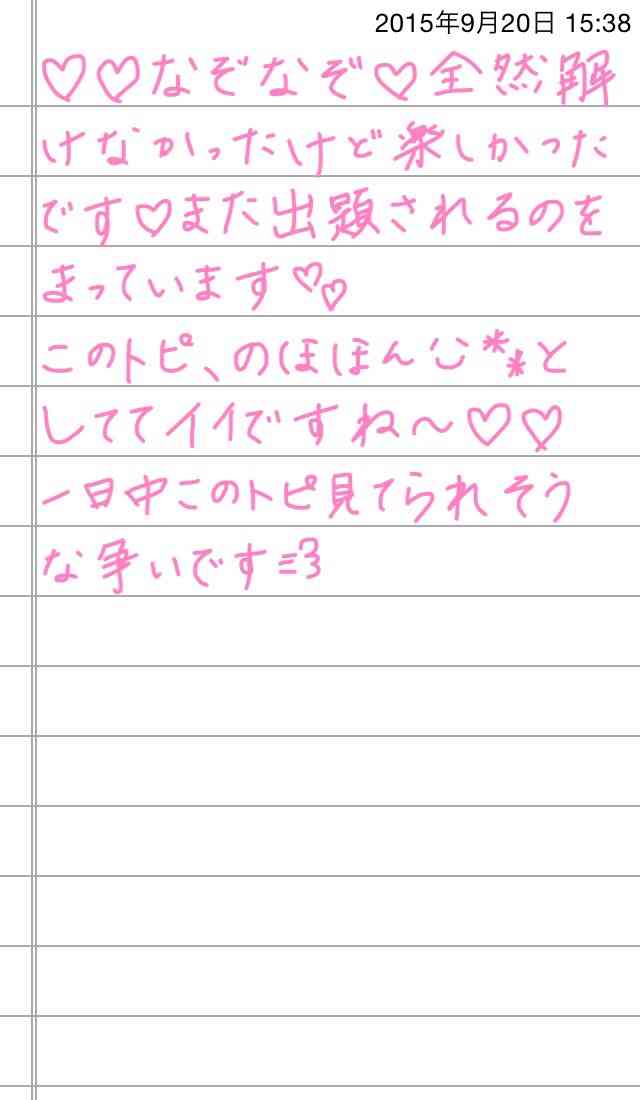 2015年9月20日 15:38
♡♡なぞなぞ♡全然解
けなかったけど楽しかった
です♡また出題されるのを
まっています♡♡
このトピ、のほほん**と
しててイイですね〜♡♡
一日中このトピ見てられそう
な争いです